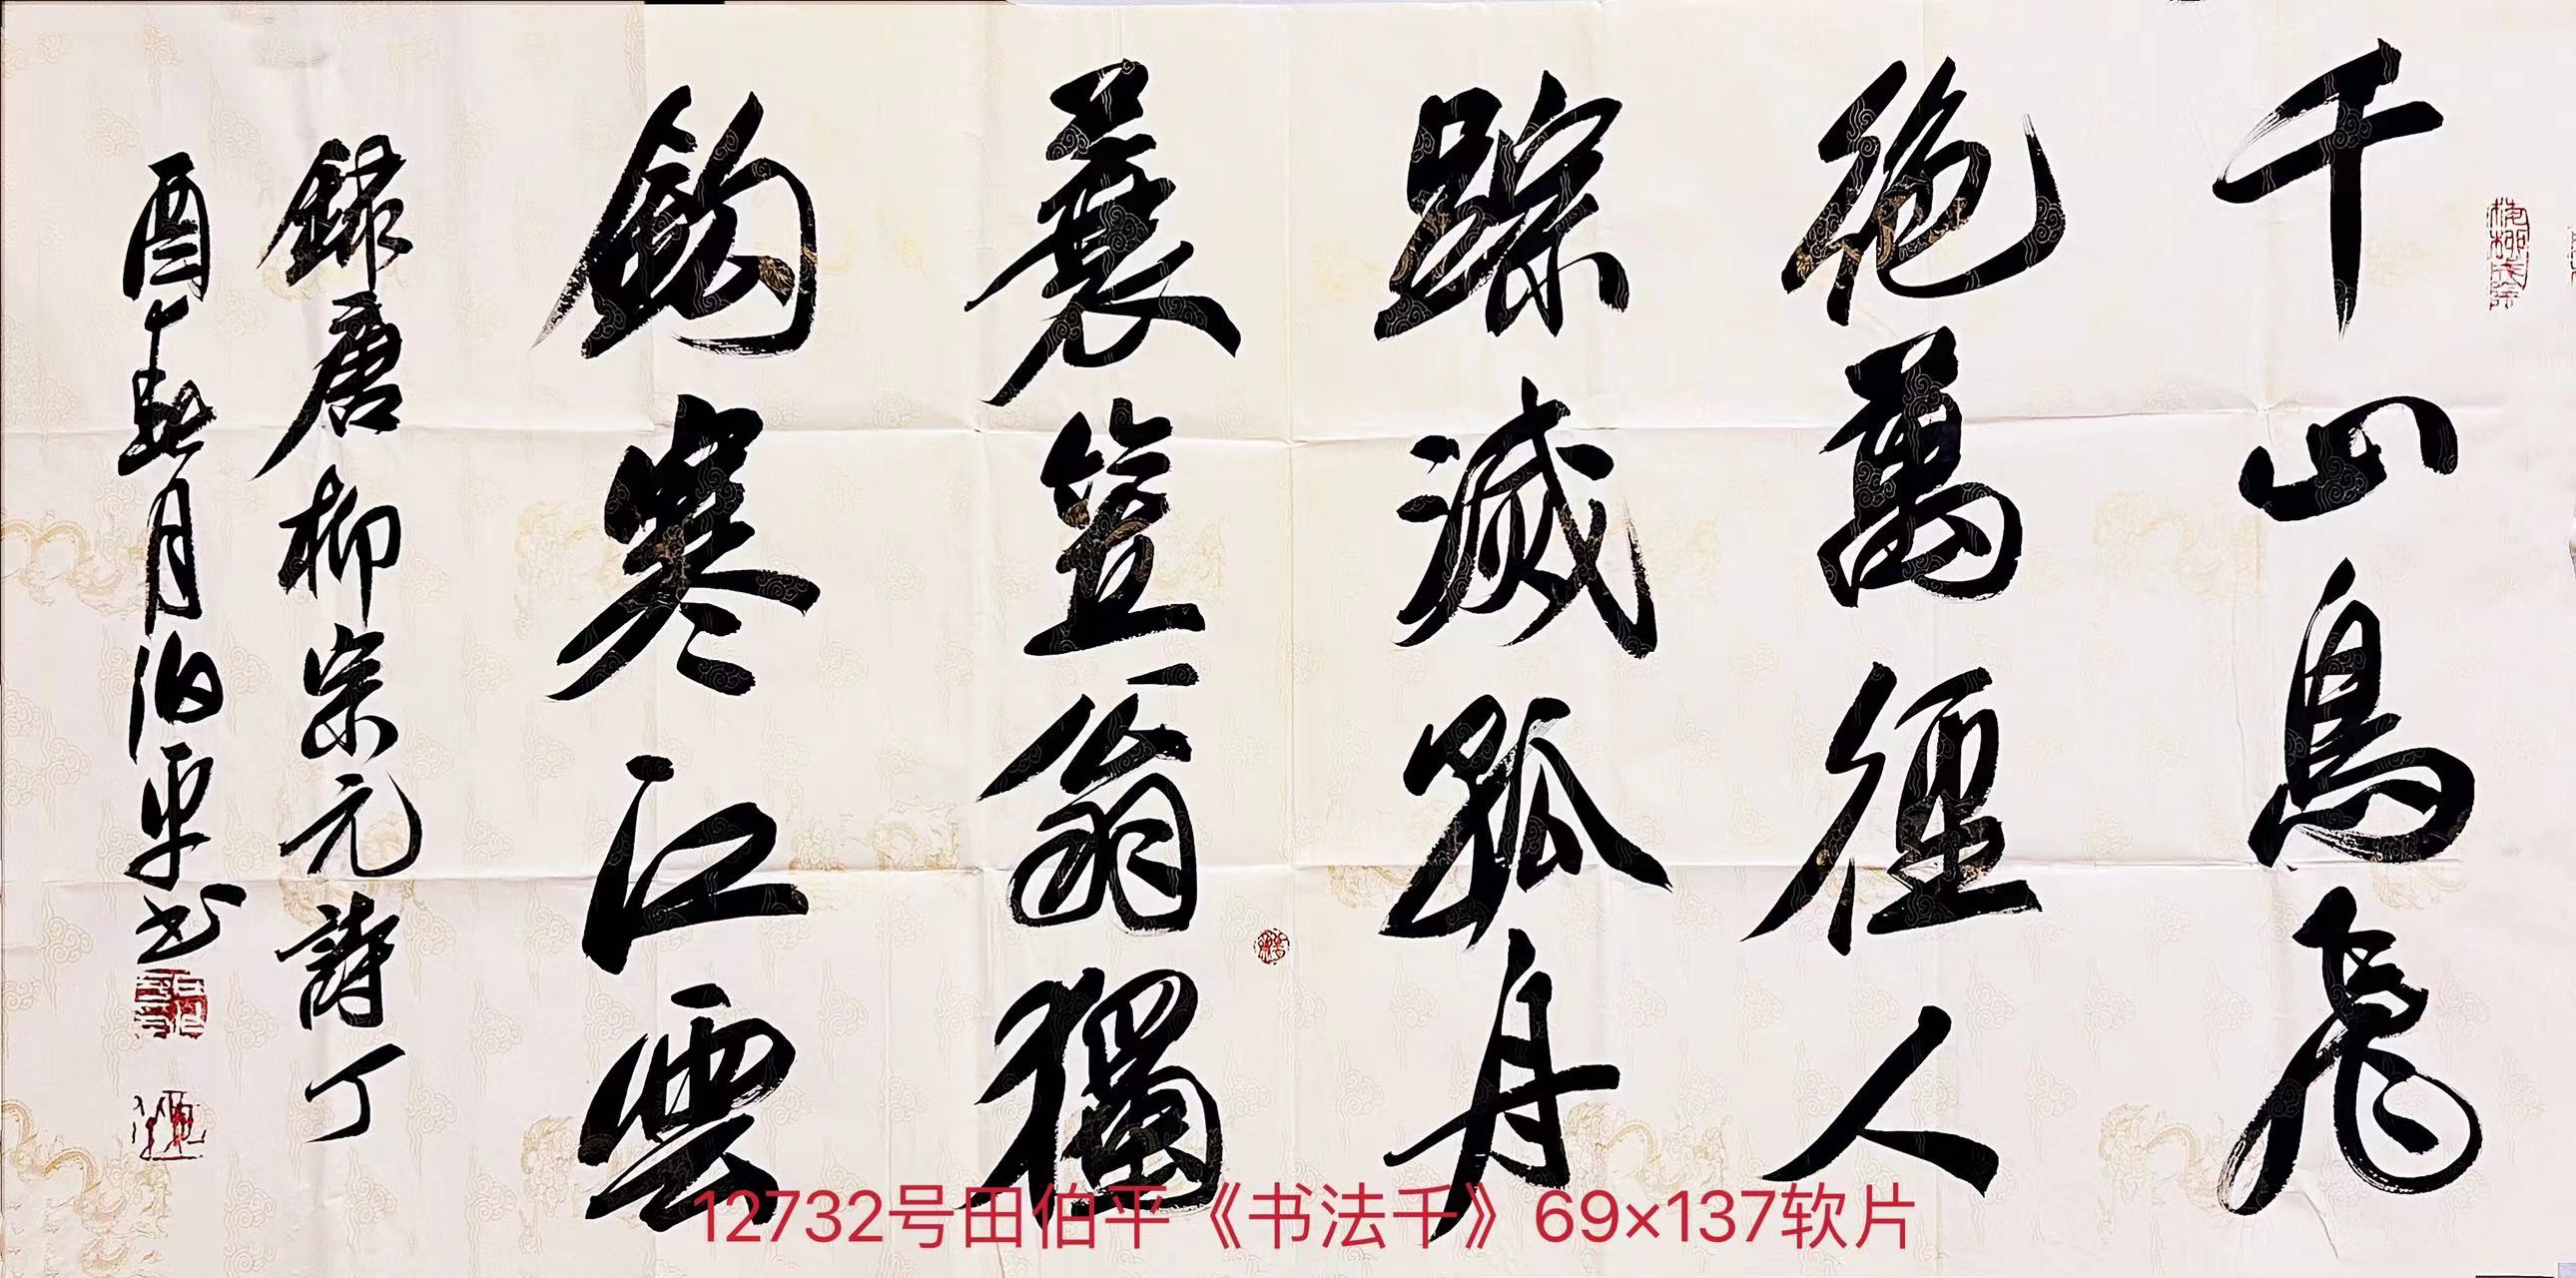 千山鳥飛
絕萬徑人
踪滅孤舟
蓑笠翁獨
鈎寒江雲
錄唐柳宗元詩丁
酉月伯平书
12732号田伯平《书法千》69×137软片